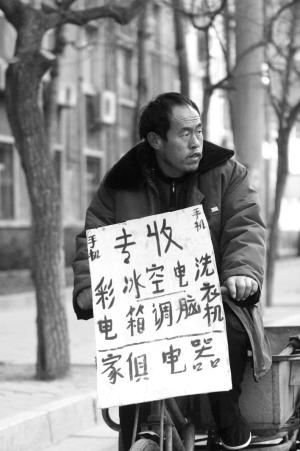 手机
专收
手机
彩电
冰箱
空调
电脑
洗衣机
家俱电器